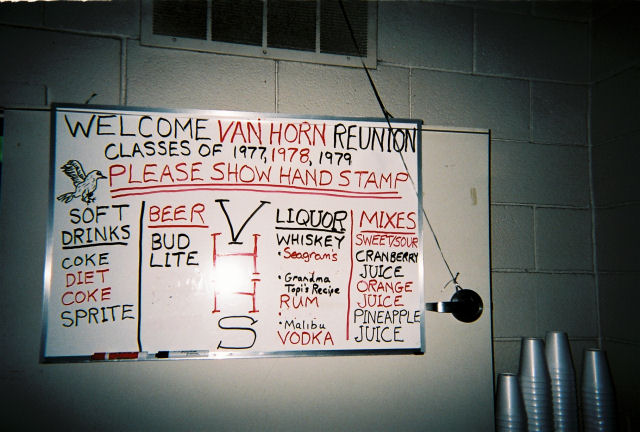 WELCOME VAN HORN REUNION
CLASSES OF 1977, 1978, 1979
PLEASE SHOW HAND STAMP
SOFT
DRINKS
COKE
DIET
COKE
SPRITE
BEER
BUD
LITE
V
H
H
S
LIQUOR
WHISKEY
• Seagram's
• Grandma
Topi's Recipe
RUM
• Malibu
VODKA
MIXES
SWEET/SOUR
CRANBERRY
JUICE
ORANGE
JUICE
PINEAPPLE
JUICE